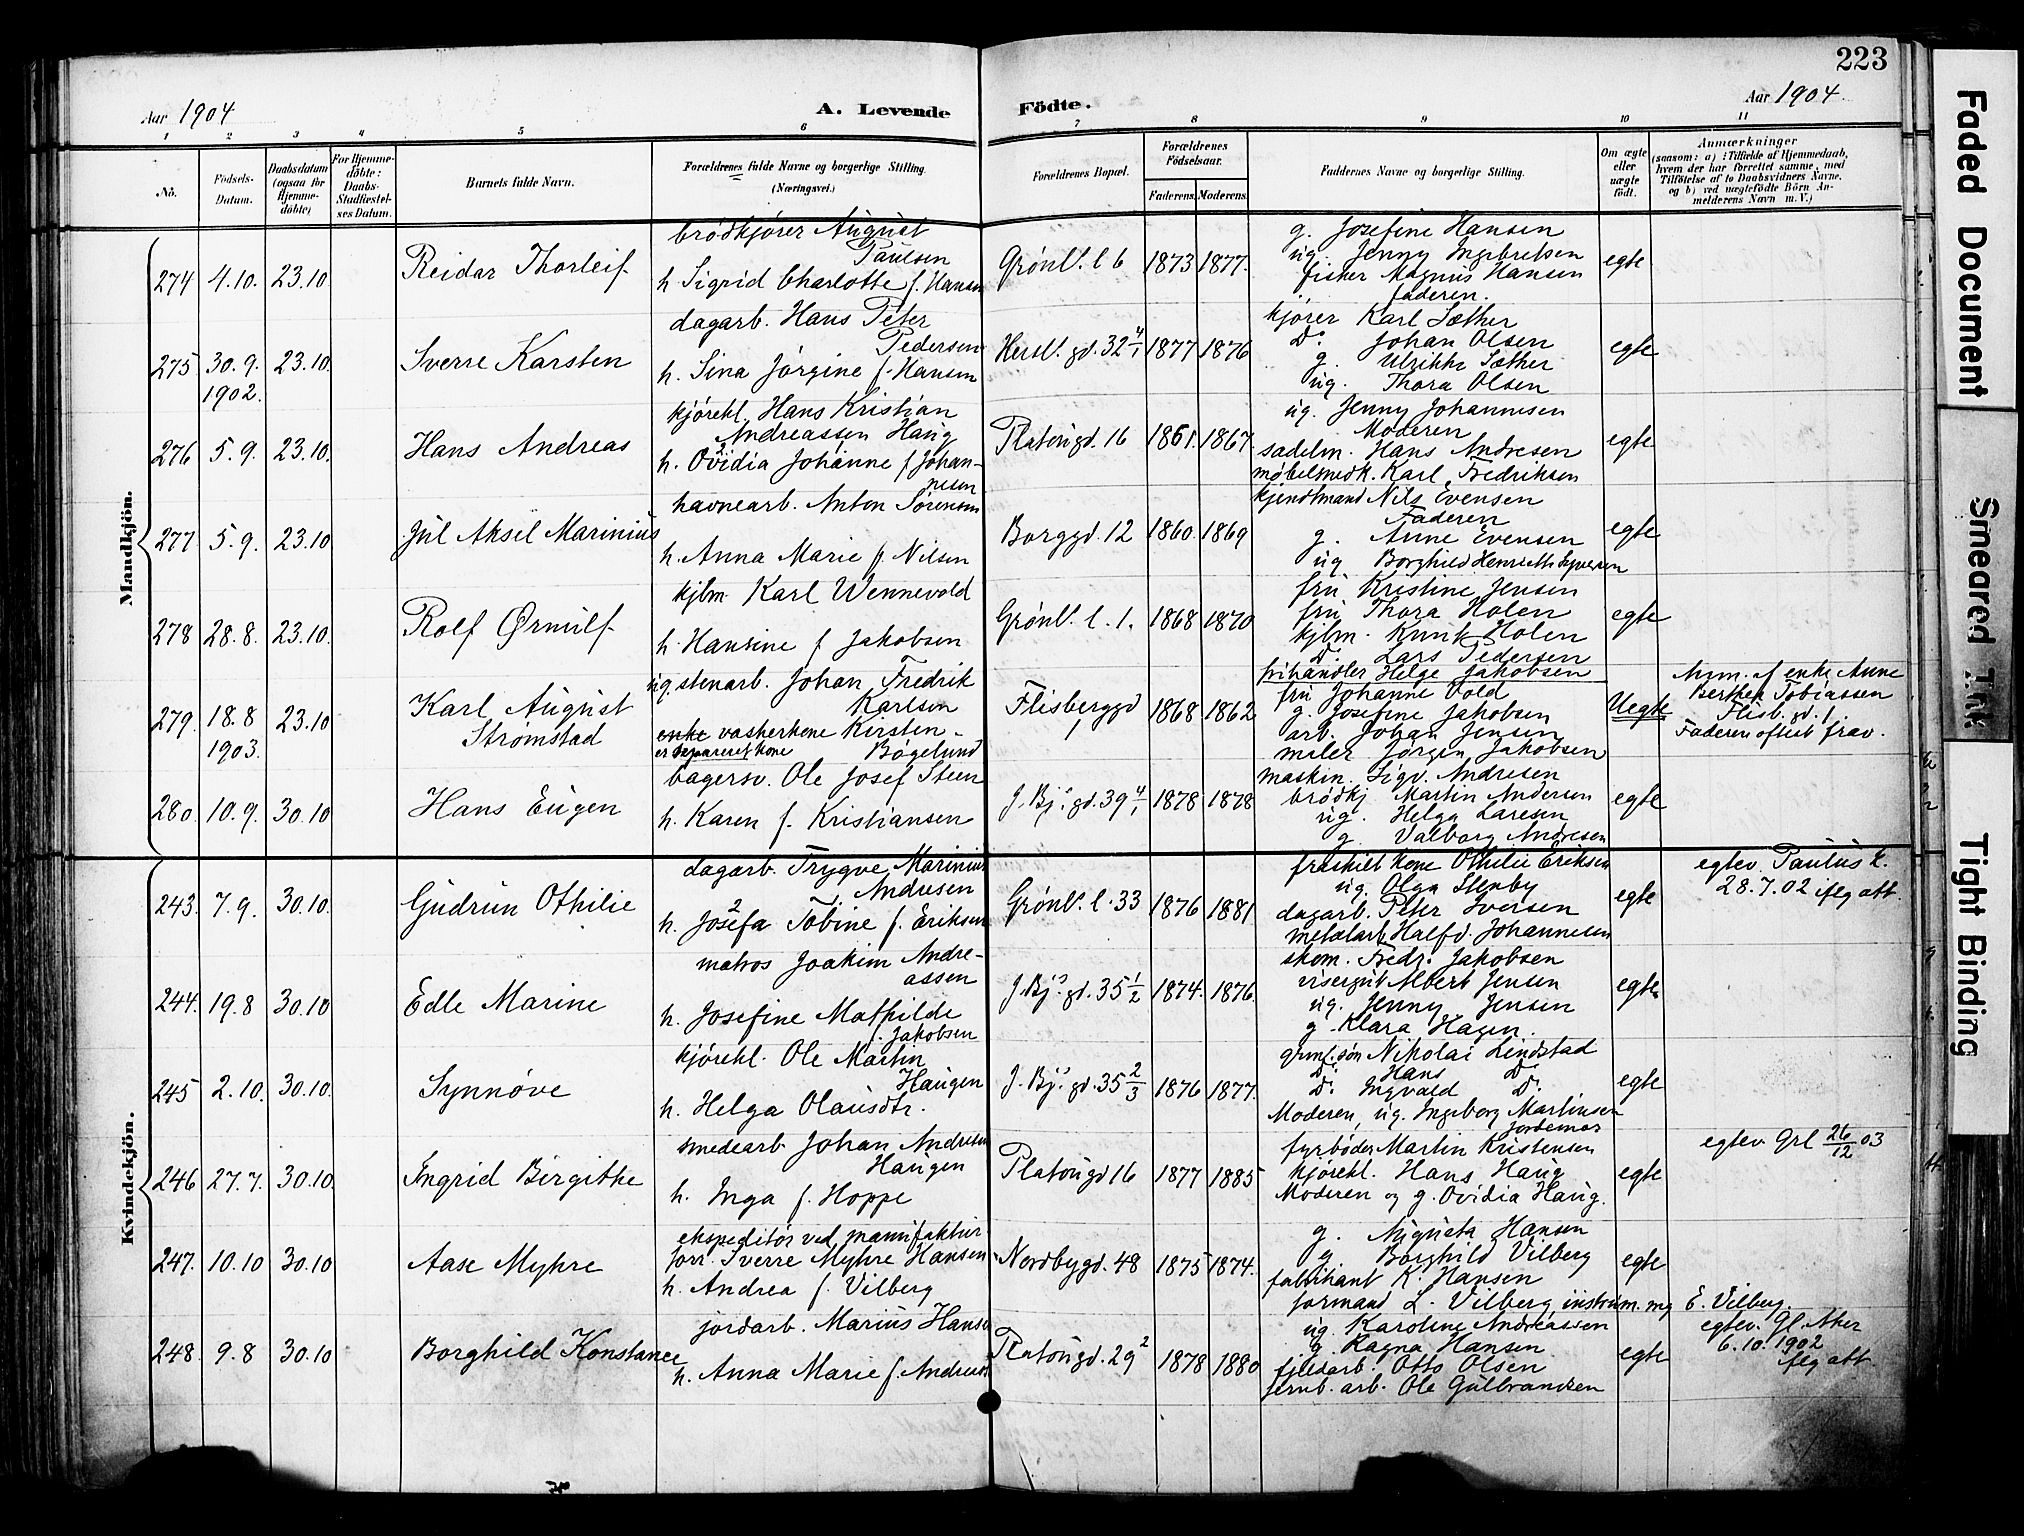 223
Aar 1904
A. Levende
Födte.
Aar 1904.
1 2 3 4 5 6 7 8 9 10 11
No.
Födsels-
Datum.
Daabsdatum
(ogsaa for
Hjemme-
döbte)
For Hjemme-
döbte:
Daabs-
Stadfæstel-
ses Datum.
Barnets fulde Navn.
Forældrenes fulde Navne og borgerlige Stilling.
(Næringsvei.)
Forældrenes Bopæl.
Forældrenes
Födselsaar.
Faderens. Moderens.
Faddernes Navne og borgerlige Stilling.
Om ægte
eller
uægte
födt.
Anmærkninger
(saasom: a) i Tilfælde af Hjemmedaab,
hvem der har forrettet samme, med
Tilföielse af to Daabsvidners Navne,
og b) ved uægtefödte Börn An-
melderens Navn m. V.)
Mandkjön.
274 4.10. 23.10
Reidar Thorleif
brødkjører August
Paulsen
h. Sigrid Charlotte f. Hansen
Grønl. l 6 1873 1877.
g. Josefine Hansen
ug. Jenny Ingebretsen
fisker Magnus Hansen
faderen.
egte
275 30.9. 23.10.
1902.
Sverre Karsten
dagarb. Hans Peter
Pedersen
h. Sina Jørgine f. Hansen
Hersl. gd. 32 4/1 1877 1876
kjører Karl Sæther
D: Johan Olsen
g. Ulrikke Sæther
ug. Thora Olsen
egte
276 5.9. 23.10.
Hans Andreas
kjørekl. Hans Kristian
Andreassen Haug
h. Ovidia Johanne f. Johan-
nesen
Platougd. 16 1861. 1867.
ug. Jenny Johannesen
Moderen
sadelm. Hans Andresen
møbelsnedk. Karl Fredriksen
egte
277 5.9. 23.10
Jul Aksel Marinius
havnearb. Anton Sørensen
h. Anna Marie f. Nilsen
Borggd. 12 1860. 1869
kjendtmand Nils Evensen
Faderen
g. Anne Evensen
ug. Borghild Henriette Syversen
egte
278 28.8. 23.10.
Rolf Ørnulf
kjbm. Karl Wennevold
h. Hansine f. Jakobsen
Grønl. l. 1. 1868 1870
fru Kristine Jensen
fru Thora Holen
kjbm. Knut Holen
D: Lars Pedersen
egte
279. 18.8 23.10
1903.
Karl August
Strømstad
ug. stenarb. Johan Fredrik
Karlsen
enke vaskerkone Kirsten
er separeret kone Bøgelund
Flisberggd
1 1868 1862
frihandler Helge Jakobsen
fru Johanne Vold
g. Josefine Jakobsen
arb. Johan Jensen
maler Jørgen Jakobsen
Uegte
Anm. af enke Anne
Berthea Tobiassen
Flisb. gd. 1.
Faderen oftest frav.
280. 10.9. 30.10
Hans Eugen
bagersv. Ole Josef Steen
h. Karen f. Kristiansen
J. Bj.s gd. 39 4/1 1878 1878
maskin. Sigv. Andresen
brødkj. Martin Andersen
ug. Helga Larsen
g. Valborg Andresen
egte
Kvindekjön.
243. 7.9. 30.10.
Gudrun Othilie
dagarb. Trygve Marinius
Andresen
h. Josefa Tobine f. Eriksen
Grønl. l. 33 1876 1881
fraskilt kone Othilie Eriksen
ug. Olga Stenby
dagarb. Peter Iversen
metalarb. Halfd. Johannesen
egte
egtev. Paulus k.
28.7.02 iflg att.
244. 19.8 30.10
Edle Marine
matros Joakim Andre-
assen
h. Josefine Mathilde
f. Jakobsen
J. Bj.s gd. 35 1/2 1874. 1876.
skom. Fredr. Jakobsen
visergut Albert Jensen
ug. Jenny Jensen
g. Klara Hagen.
egte
245 2.10. 30.10.
Synnøve
kjørekl. Ole Martin
Haugen
h. Helga Olausdtr.
J. Bj.s gd. 35 2/3 1876 1877.
grmf. søn Nikolai Lindstad
D: Hans D:
D: Ingvald D:
Moderen, ug. Ingeborg Martinsen
jordemor
egte
246 27.7. 30.10.
Ingrid Birgithe
smedearb Johan Andresen
Haugen
h. Inga f. Hoppe
Platougd 16 1877 1885
fyrbøder Martin Kristensen
kjørekl. Hans Haug
Moderen og g. Ovidia Haug.
egte
egtev Grl 26/12 03
247. 10.10 30.10
Aase Myhre
ekspeditør ved manufaktur-
forr. Sverre Myhre Hansen
h. Andrea f. Vilberg
Nordbygd. 48 1875 1874.
g. Augusta Hansen
g Borghild Vilberg
fabrikant K. Hansen
formand L. Vilberg, instrum. mg E. Vilberg.
egte
248. 9.8 30.10
Borghild Konstance
jordarb. Marius Hansen
h. Anna Marie f. Andresen
Platougd. 29 2 1878 1880
ug. Karoline Andreassen
g. Ragna Hansen
fjeldarb. Otto Olsen
jernb. arb. Ole Gulbrandsen
egte
egtev. Gl. Aker
6.10.1902
iflg att
Faded Document
Smeared Ink
Tight Binding